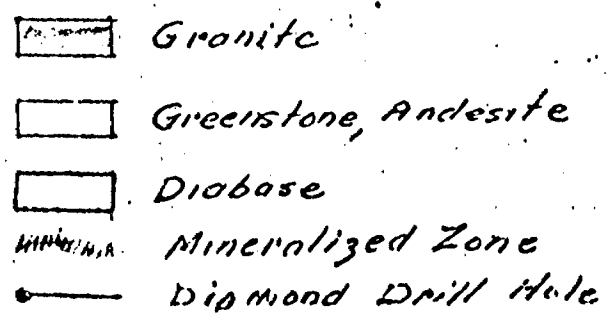 Granite
Greenstone, Andesite
Diabase
Mineralized Zone
Diamond Drill Hole